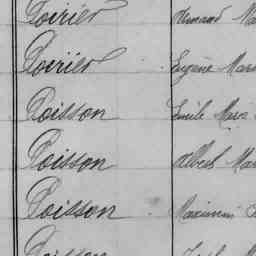 Poirier Armand Ma
Poirier Eugène Mari
Poisson Emile Mari
Poisson Albert Mar
Poisson Maximin
Poisson